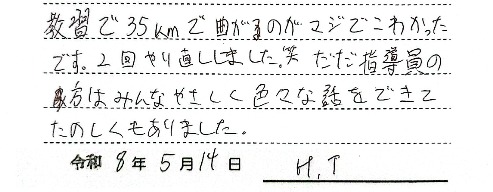 教習で35kmで曲がるのがマジでこわかった
です。2回やり直ししました。笑 ただ指導員の
方はみんなやさしく色々な話をできて
たのしくもありました。
令和8年5月14日 H.T